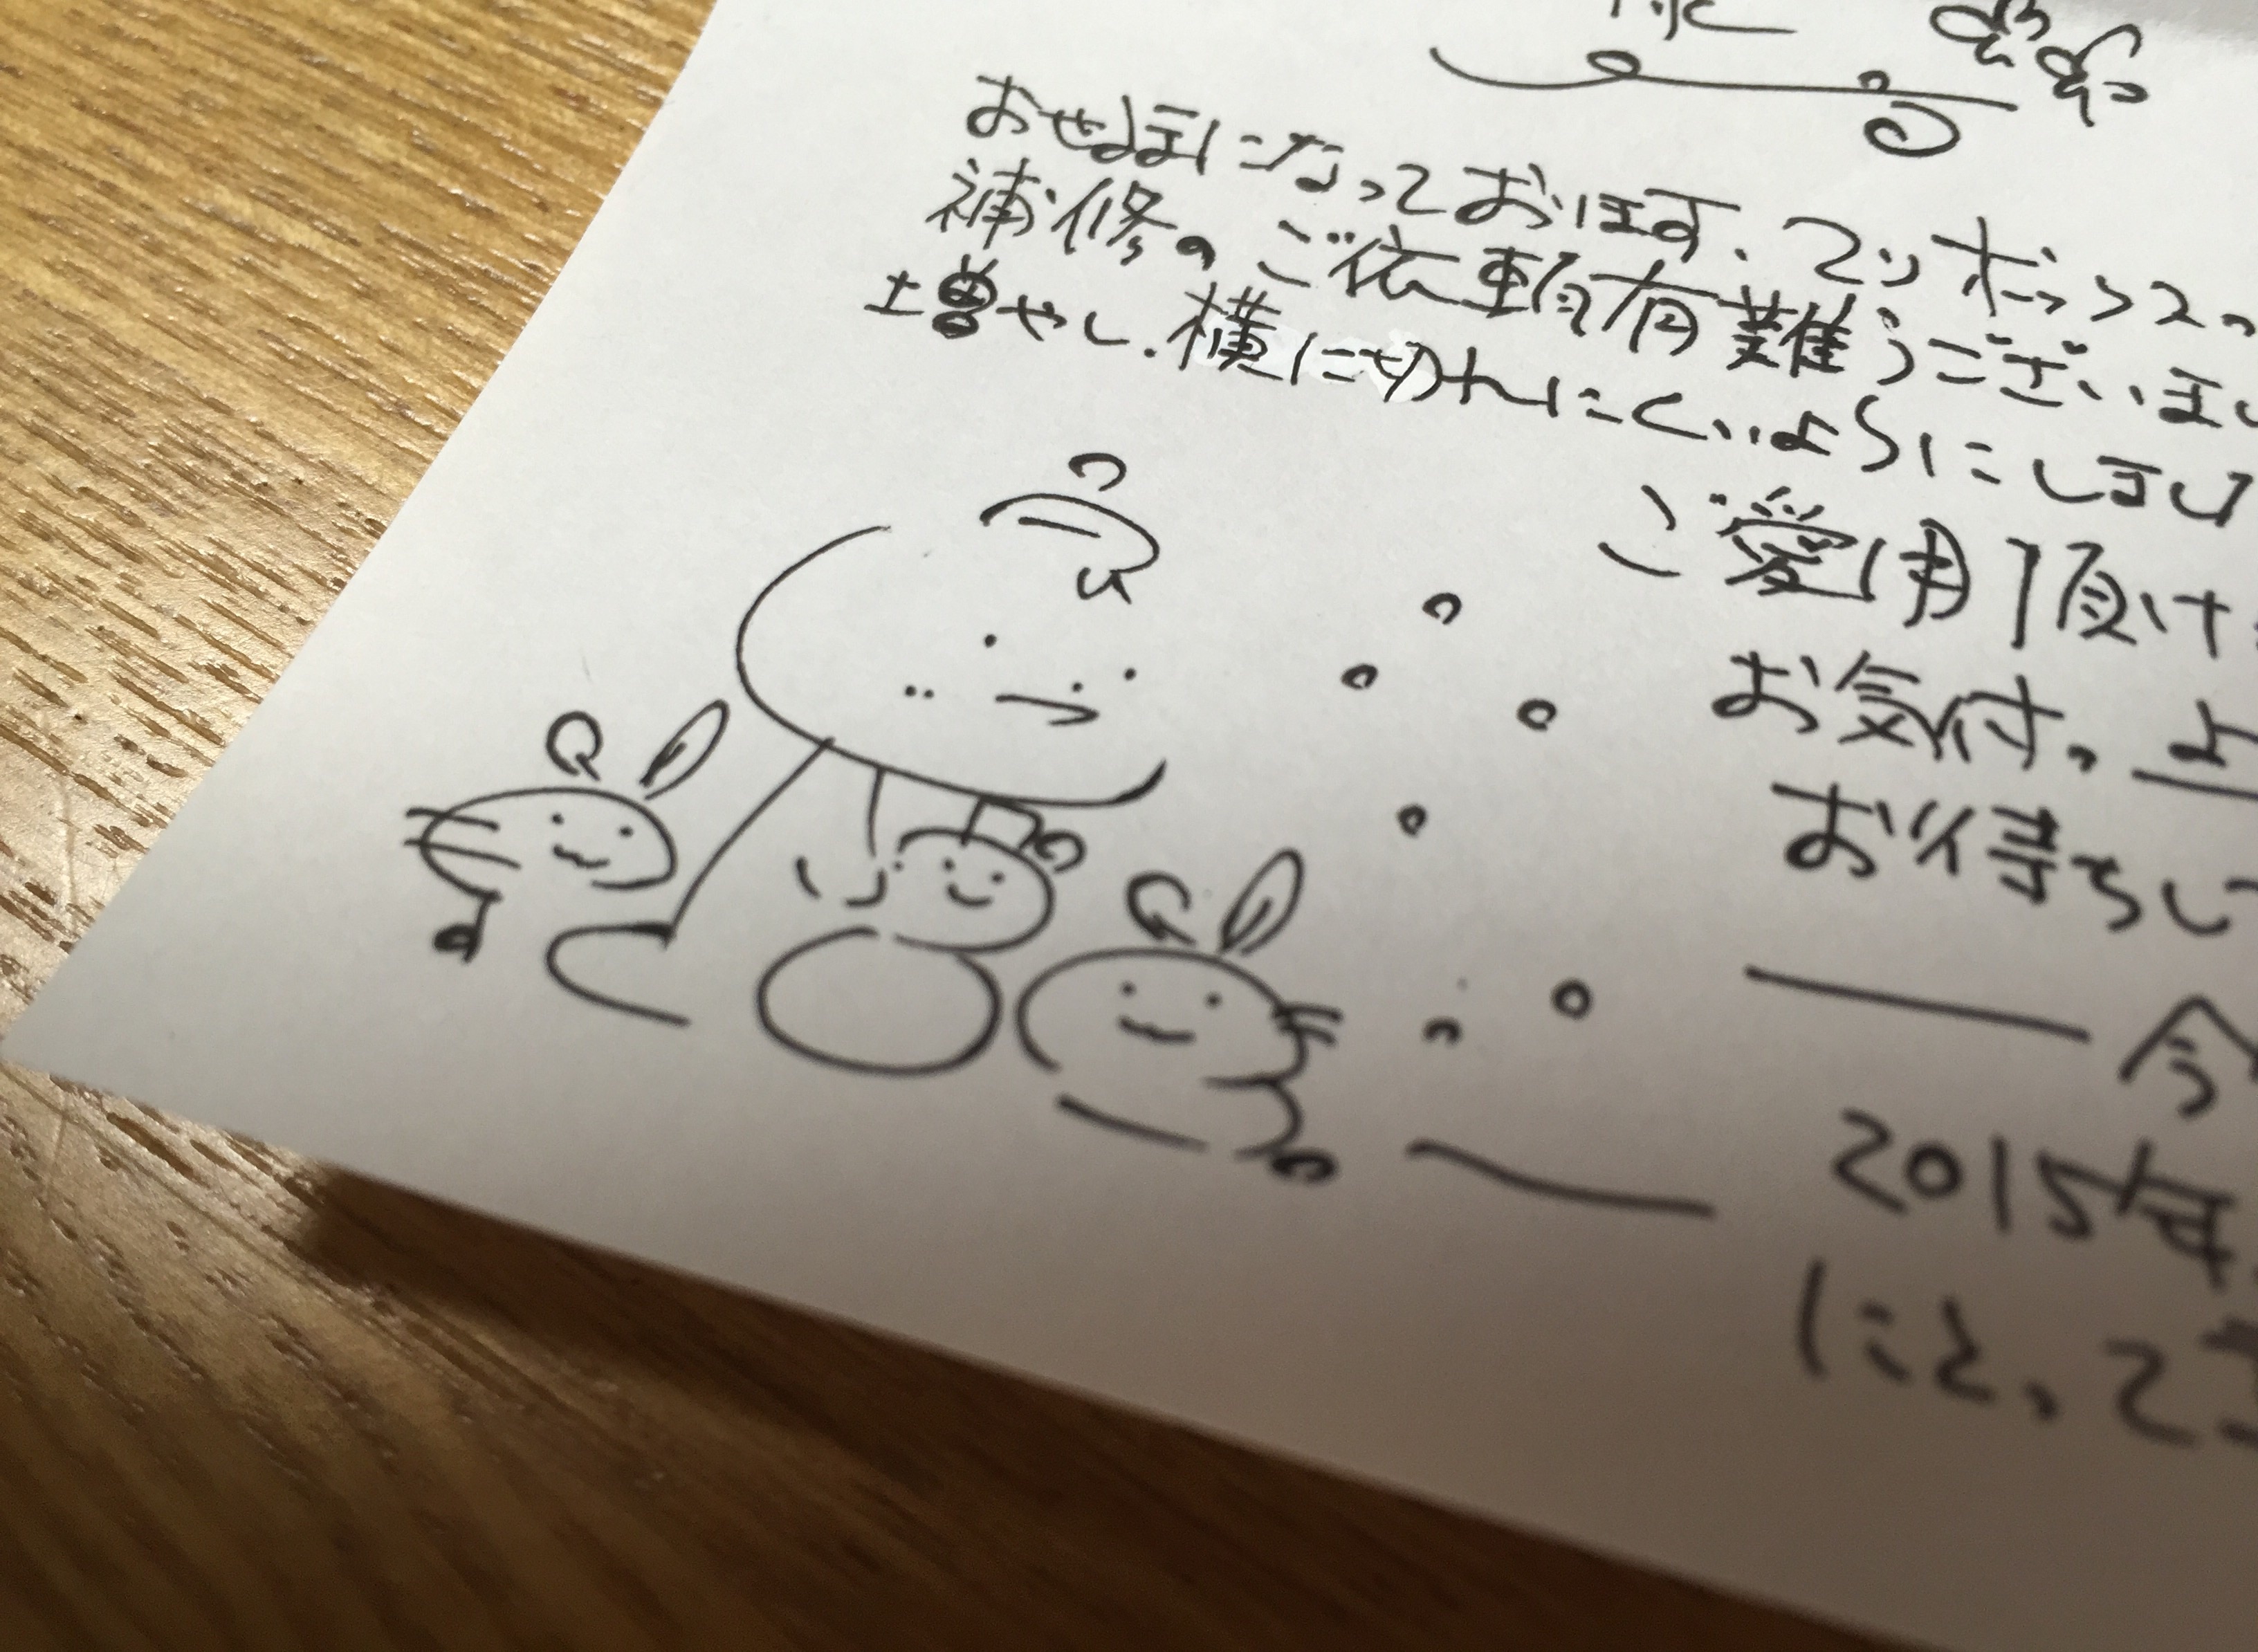 おせ話になっております、マリボックスの
補修のご依頼有難うございまし
増やし、横に切れにくいようにしまし
ご愛用頂け
お気付の上
お待ちし
今
2015年
にとって